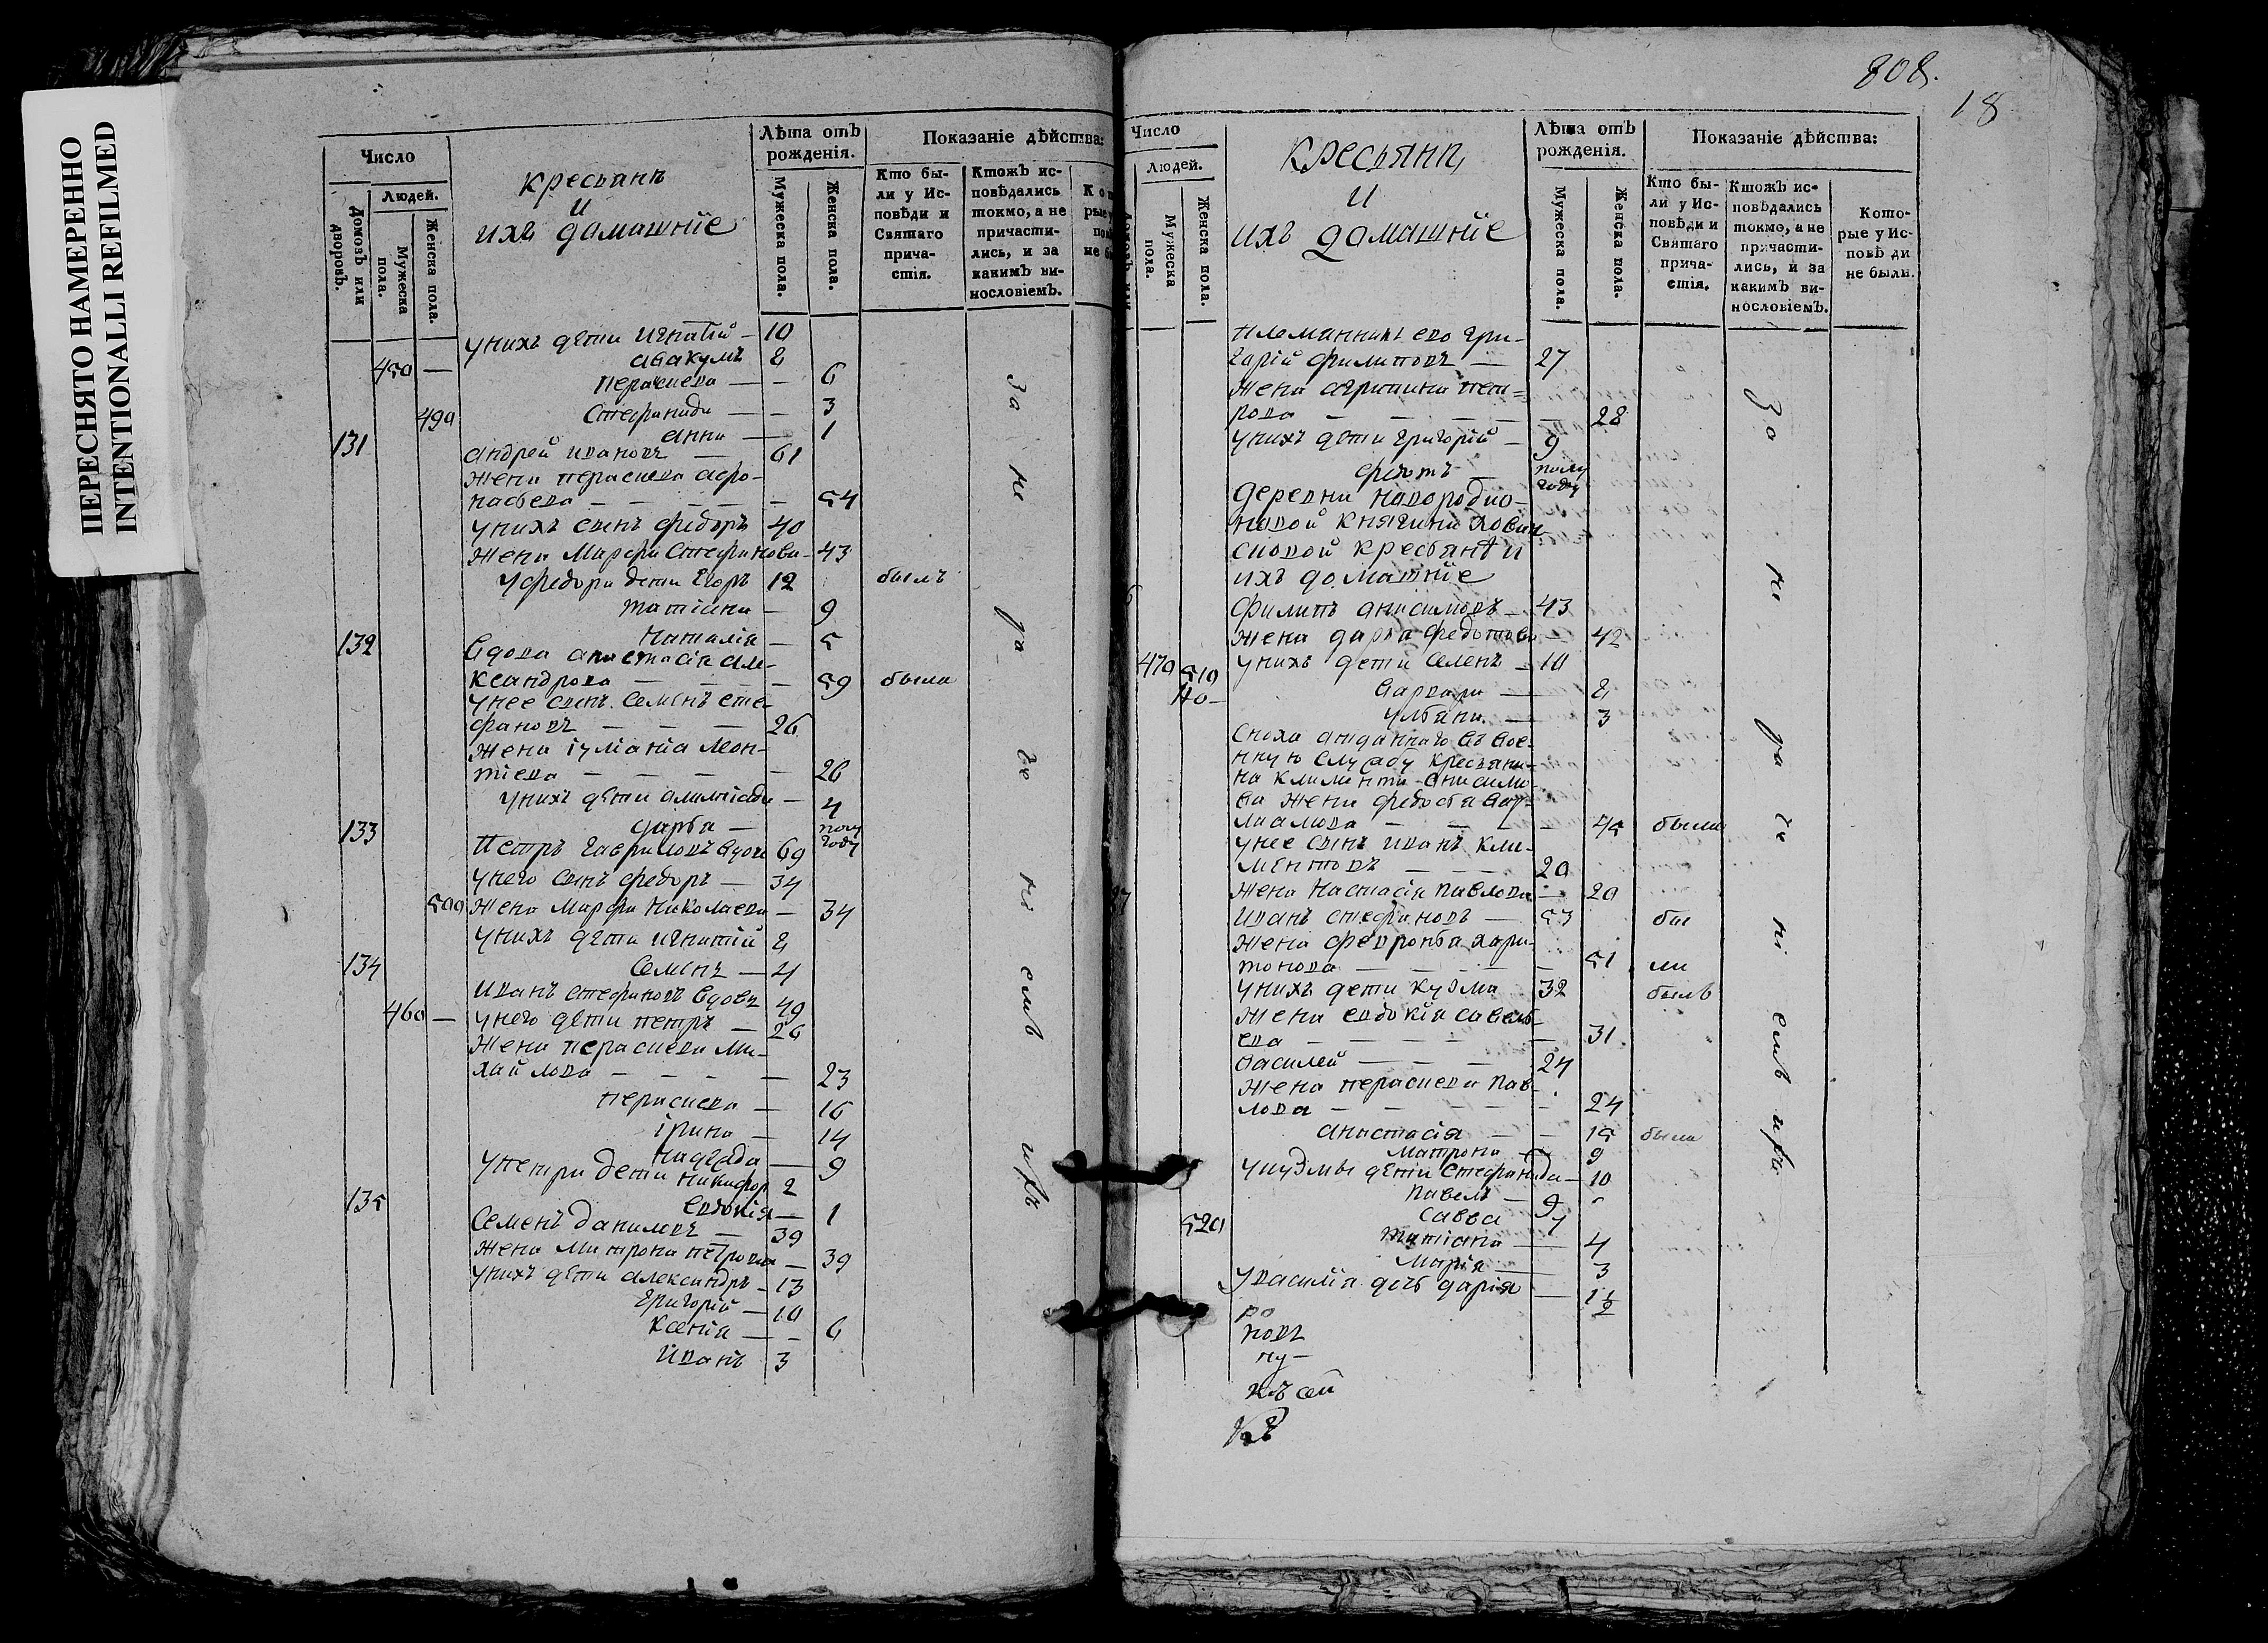 ПЕРЕСНЯТО НАМЕРЕННО
INTENTIONALLI REFILMED
Число
Людей.
Домовъ или дворовъ.
Мужеска пола.
Женска пола.
крестьянѣ
и
ихъ домашнїе
Лѣта отъ рожденія.
Мужеска пола.
Женска пола.
Показаніе дѣйства:
Кто бы-
ли у Ис-
повѣди и
Святаго
прича-
стія.
Ктожъ ис-
повѣдались
токмо, а не
причасти-
лись, и за
какимъ ви-
нословіемъ.
у нихъ дети игнатїй — 10
авакумъ 8
450 — параскева — — 6
стефанида — — 3
490 анна — 1
131 андрей ивановъ — 61
жена параскева афо-
насьева — — — — 54
у нихъ сынъ федоръ 40
жена марфа стефанова — 43
у федора дети егоръ 12 былъ
татїяна — 9
наталїя — 5
132 вдова анастасїя але-
ксандрова — — — 59 была
у нее сынъ семенъ сте-
фановъ — — — 26
жена іулїанїа леон-
тїева — — — — 26
у нихъ дети — 4
дарья — полу году
133 петръ гавриловъ вдовъ 69
у него сынъ федоръ — 34
500 жена марфа николаева — 34
у нихъ дети игнатїй 8
семенъ — 4
134 иванъ стефановъ вдовъ 49
460 — у него дети петръ — 26
жена параскева ми-
хайлова — — — — 23
параскева — 16
ірина — 14
9
у петра дети никифоръ 2
евдокїя — 1
135 семенъ даниловъ — 39
жена матрона петрова — 39
у нихъ дети александръ — 13
григорїй — 10
ксенїа — — 6
иванъ 3
за не ра че нї емъ ихъ
808.
18
Число
Людей.
Мужеска пола.
Женска пола.
крестьянѣ
и
ихъ домашнїе
Лѣта отъ рожденія.
Мужеска пола.
Женска пола.
Показаніе дѣйства:
Кто бы-
ли у Ис-
повѣди и
Святаго
прича-
стія.
Ктожъ ис-
повѣдались
токмо, а не
причасти-
лись, и за
какимъ ви-
нословіемъ.
Кото-
рые у Ис-
повѣ ди
не были.
племянникъ ево гри-
горїй филиповъ — 27
жена агрипина пет-
рова — — — — — 28
у нихъ дети григорїй — 9
федотъ — полу году
деревни
новой княгини хован-
сковой крестьянѣ и
ихъ домашнїе
филипъ анисимовъ — 43
жена дарья федотова — 42
470 у нихъ дети семенъ — 10
510 варвара — 8
ульяна — 3
сноха отданнаго въ вое-
нную службу крестьяни-
на климента анисимо-
ва жена федосья вар-
ламова — — — — 45 была
у нее сынъ иванъ кли-
ментовъ — — — 20
жена настасїя павлова — 20
иванъ стефановъ — 53 бы
жена февронья хари-
тонова — — — — 51 ли
у нихъ дети кузма 32 былъ
жена евдокїа савель-
ева — — — — — 31
василей — — — 24
жена параскева пав-
лова — — — — 24
анастасїя — — 15 была
матрона — 9
у кузмы дети стефанида — 10
павелъ — 9
520 савва 7
татїана — 4
марїя — 3
у василїа дочь дарїя — 1½
по
повъ
лу—
къ сей
за не ра че нї емъ ихъ